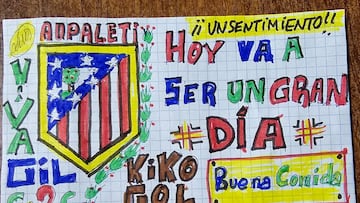 AUPALETI
¡¡UNSENTIMIENTO!!
HOY VA A
SER UN GRAN
DÍA
VIVA
GIL
KIKO
GOL
Buena Comida